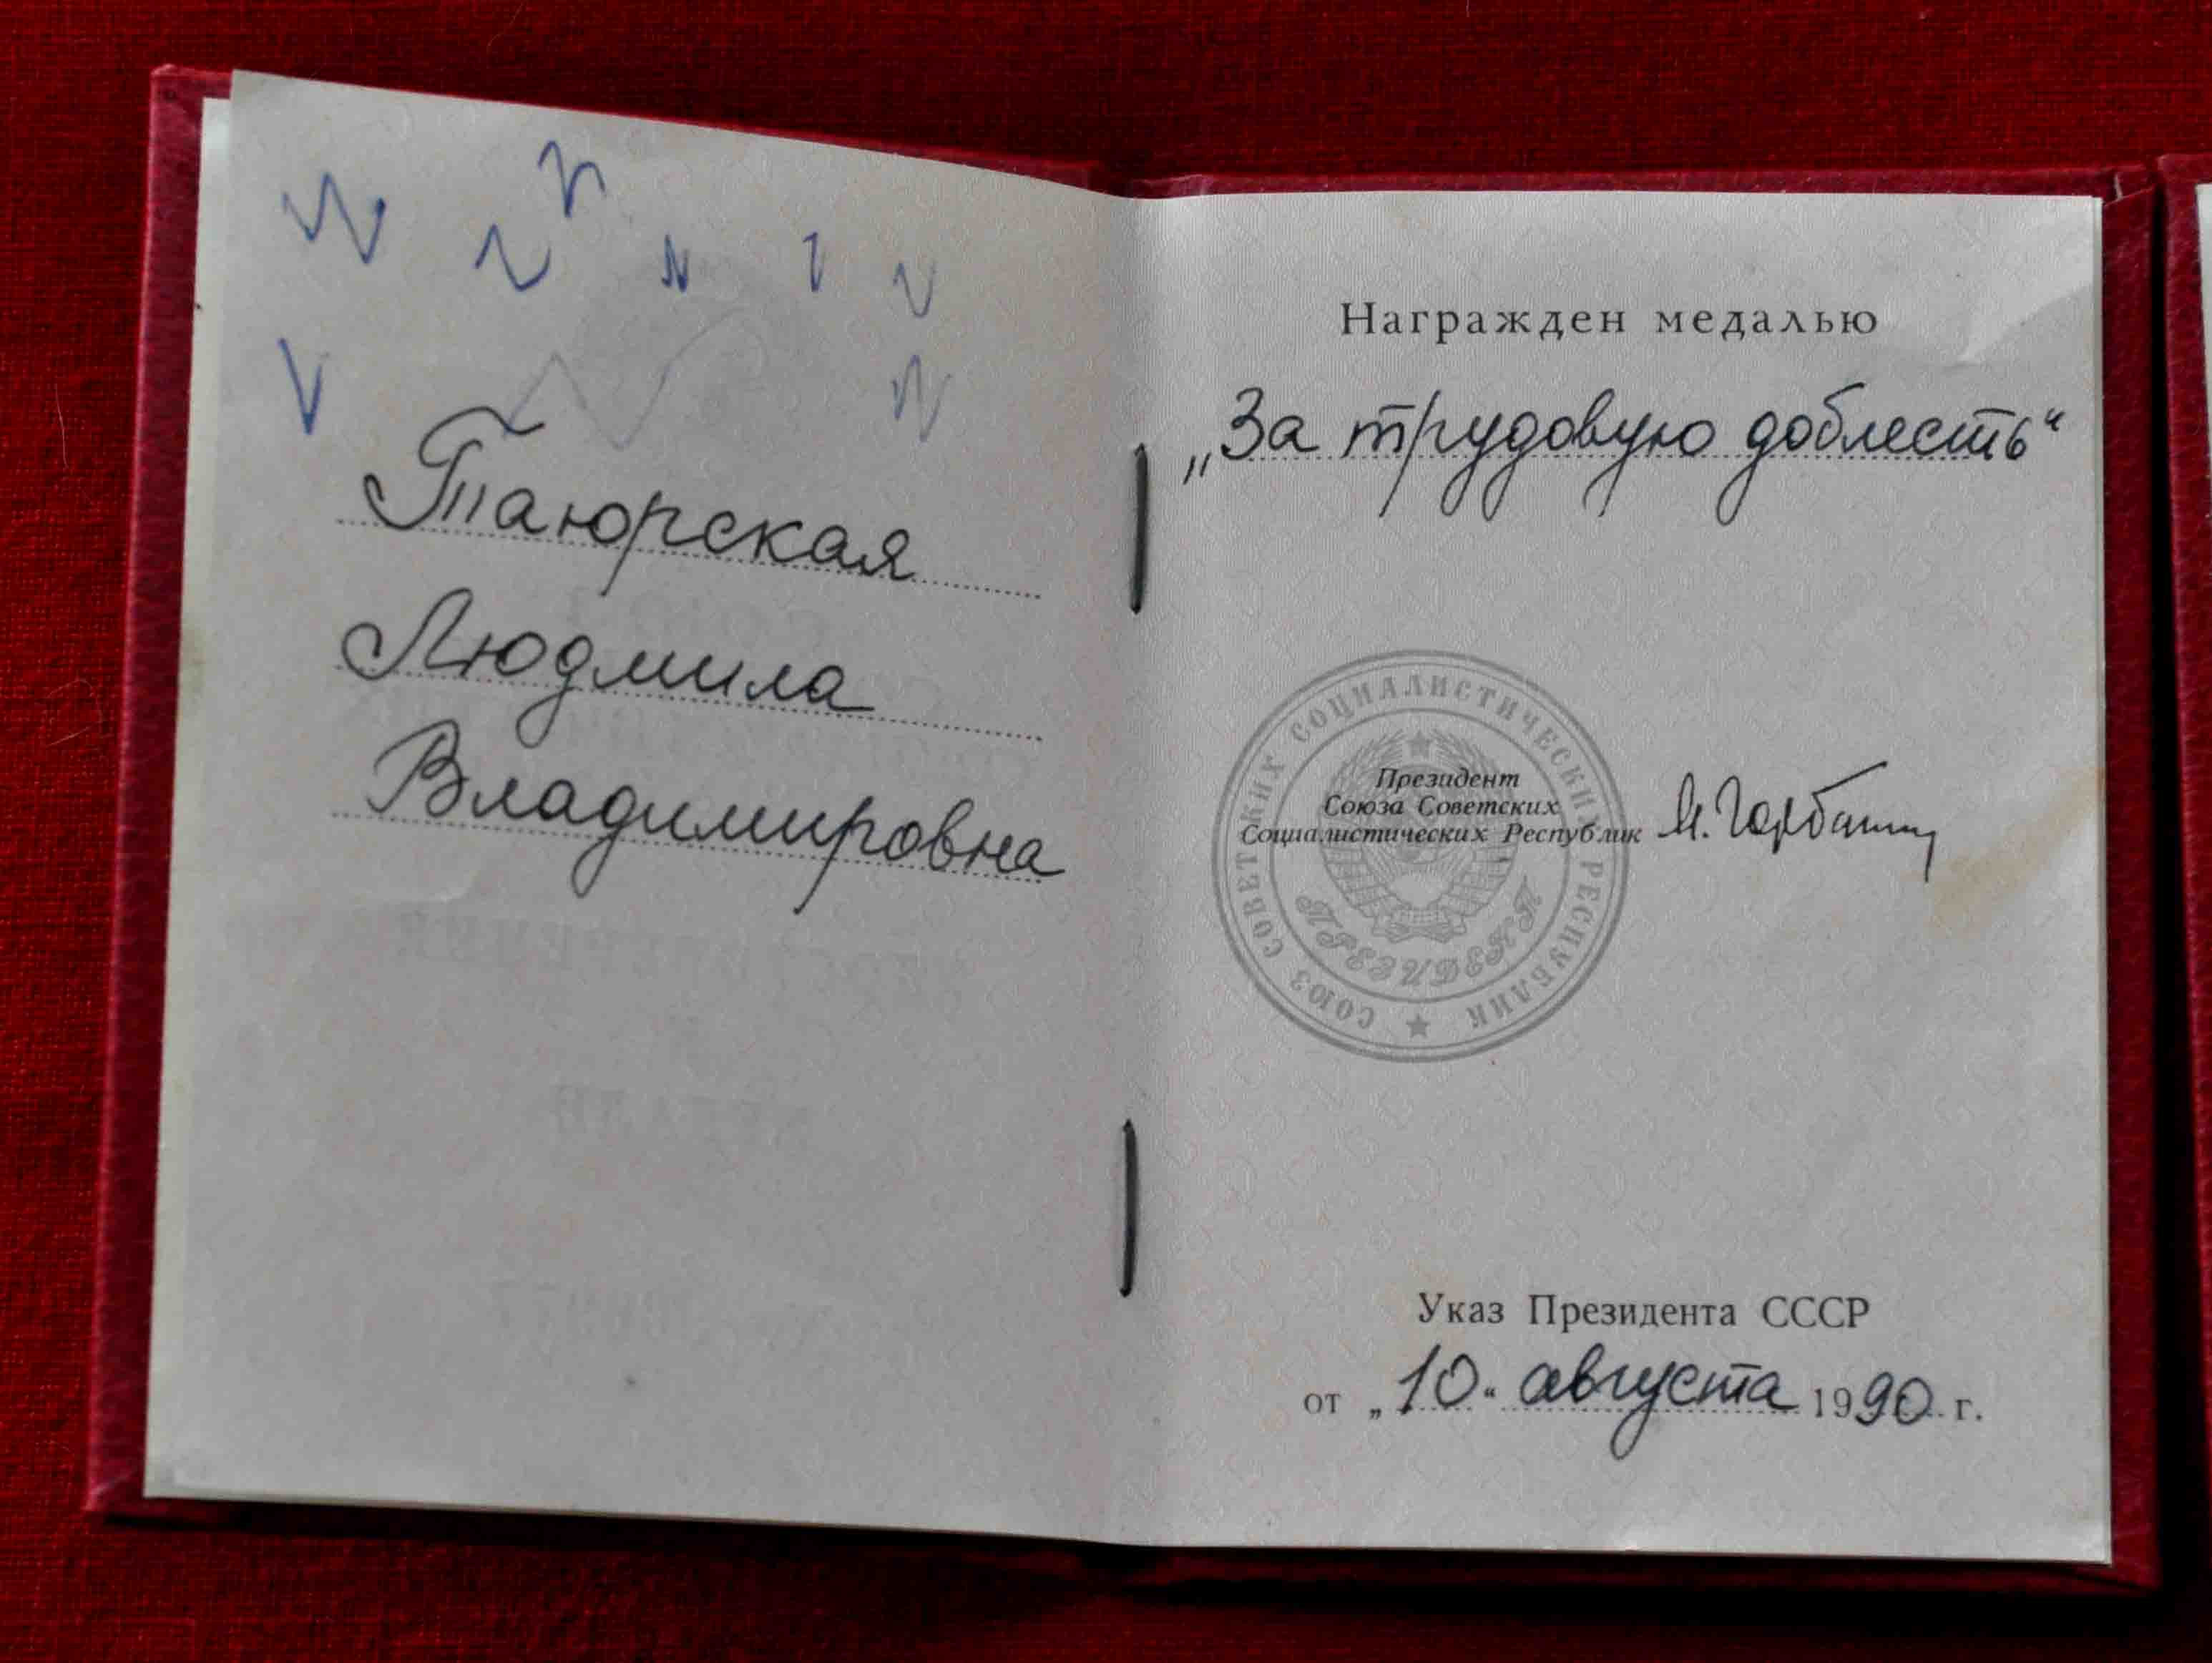 Таюрская
Людмила
Владимировна
Награжден медалью
„За трудовую доблесть“
СОЮЗ СОВЕТСКИХ СОЦИАЛИСТИЧЕСКИХ РЕСПУБЛИК
ПРЕЗИДЕНТ
Президент
Союза Советских
Социалистических Республик М. Горбачев
Указ Президента СССР
от „10“ августа 1990 г.